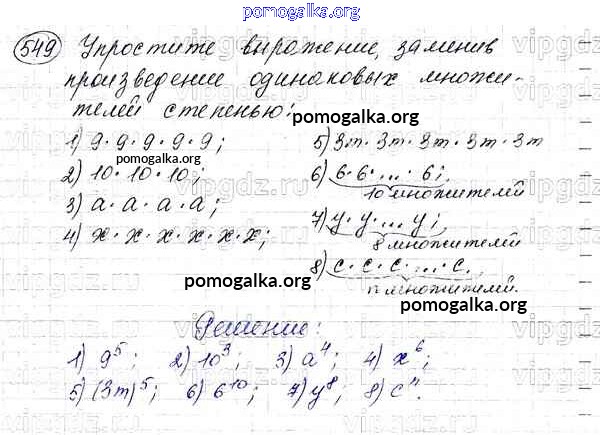 pomogalka.org
549 Упростите выражение, заменив
произведение одинаковых множи-
телей степенью:
pomogalka.org
1) 9·9·9·9·9;
pomogalka.org
2) 10·10·10;
3) a·a·a·a;
4) x·x·x·x·x·x;
5) 3m·3m·3m·3m·3m
6) 6·6·...·6;
10 множителей
7) y·y·...·y;
8 множителей
8) c·c·c·...·c.
n множителей.
pomogalka.org
pomogalka.org
Решение:
1) 9⁵; 2) 10³; 3) a⁴; 4) x⁶;
5) (3m)⁵; 6) 6¹⁰; 7) y⁸; 8) cⁿ.
pomogalka.org